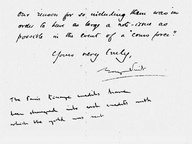 Our reason for so including them was in
order to have as large a note-issue as
possible in the event of a "cours forcé"
Yours very truly,
The Paris Exchange credits have
been changed into such credits with
which the gold was met